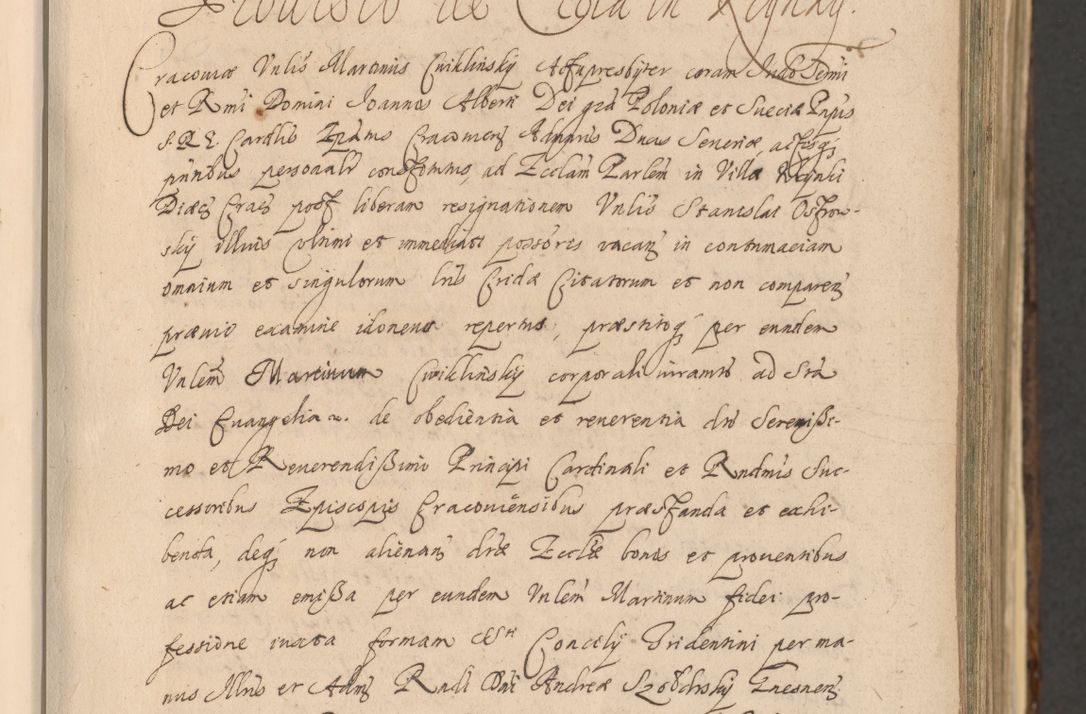 Provisio de Ecclia in Regnay.
Cracoviæ Vnlis Martinus Cwiklinsky Artiumpresbyter coram Illmo Sermi
et Rmi Domini Ioannis Alberti Dei gra Poloniæ et Sueciæ Pnpis
S. R. E. Cardlis Epatus Cracovien Admnris Ducis Severiæ, actisq
pntibus personalr constitutus, ad Ecclam Parlem in Villa Regnli
Diæc Crac post liberam resignationem Vnlis Stanislai Ostrow-
sky illius vltimi et immediati possoris vacan in contumaciam
omnium et singulorum lris Cridæ Citatorum et non comparen
prævio examine idoneus repertus, præstitoq per eundem
Vnlem Martinum Cwiklinsky corporali iuramto ad Sta
Dei Euangelia &. de obedientia et reuerentia dto Sereniſsi-
mo et Reuerendiſsimo Principi Cardinali et Rndmis Suc-
cessoribus Episcopis Cracouiensibus præstanda et exhi-
benda, deq non alienan dictæ Eccliæ bonis et prouentibus
ac etiam emiſsa per eundem Vnlem Martinum fidei pro-
fessione iuxta formam Concilij Tridentini per ma-
nus Illris et Adm Rndi Dni Andreæ Szołdrsky Gnesnen